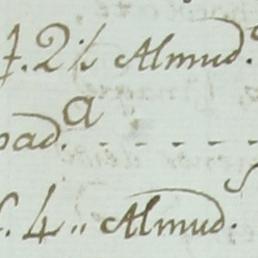 2½ Almud.s
pad.a - - - - -
4,, Almud.